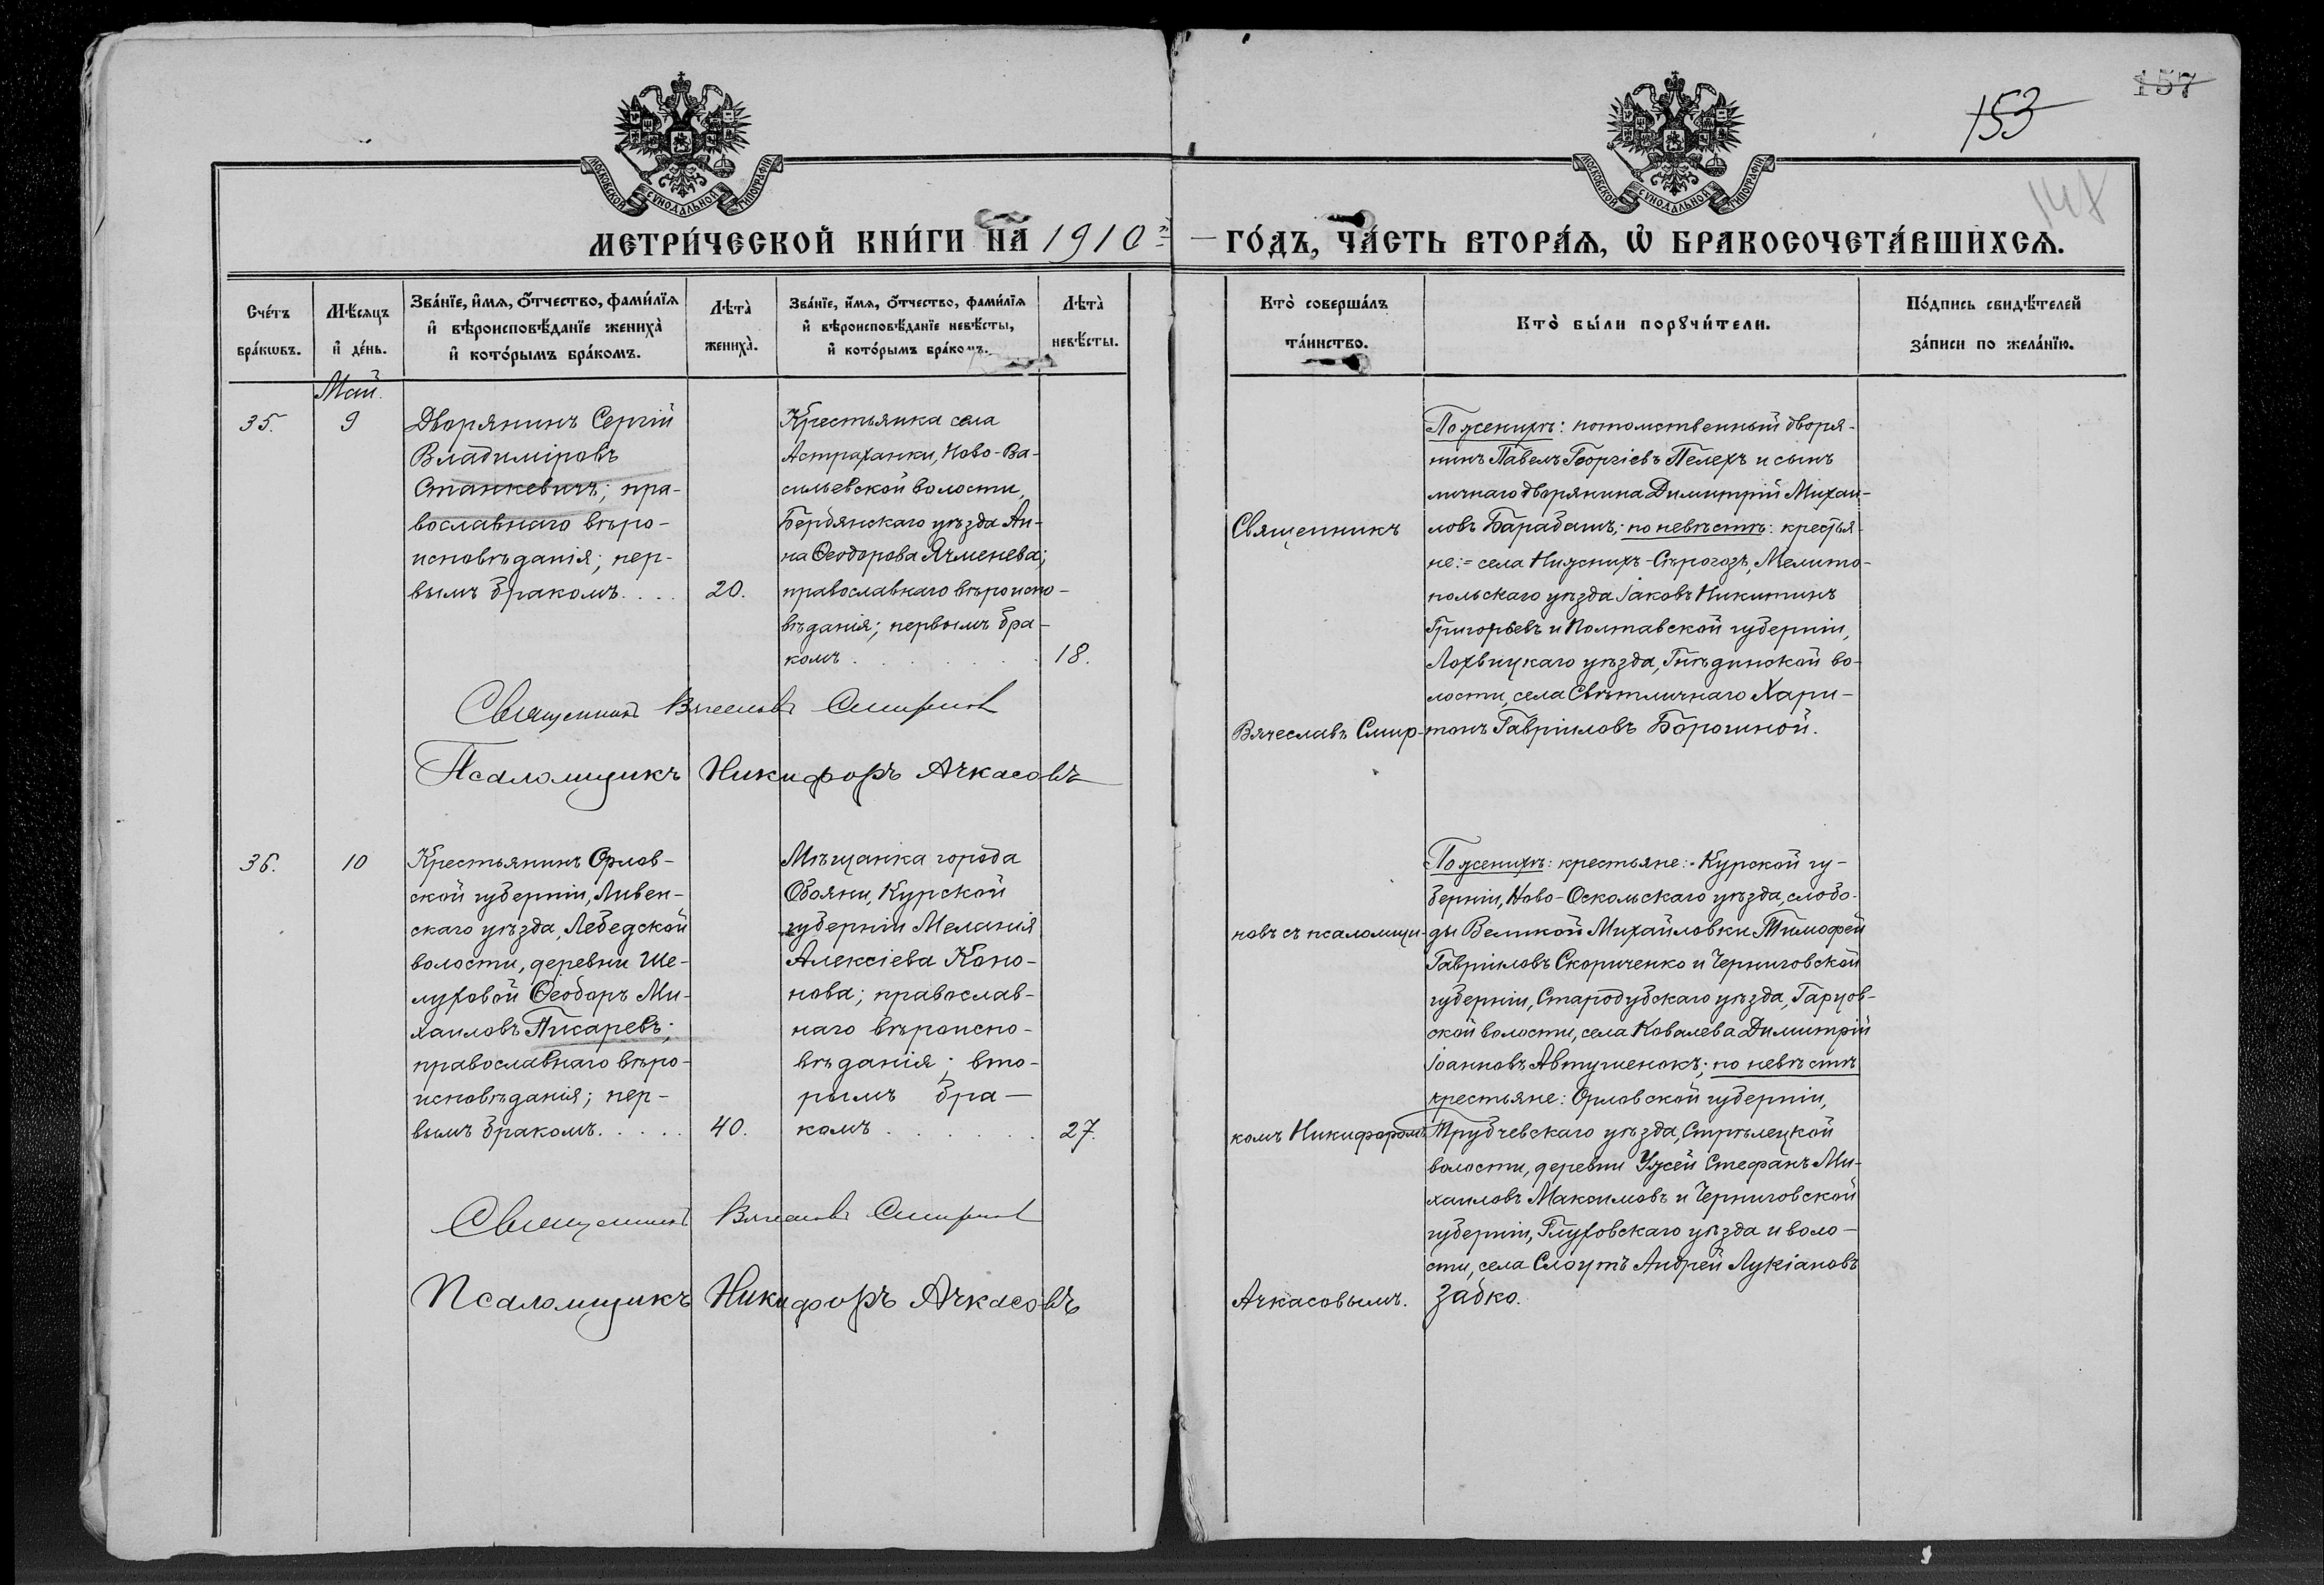 157
153
148
МОСКОВСКОЙ СѴНОДАЛЬНОЙ ТИПОГРАФІИ
МОСКОВСКОЙ СѴНОДАЛЬНОЙ ТИПОГРАФІИ
МЕТРИ́ЧЕСКОЙ КНИ́ГИ НА 1910й ГО́ДЪ, ЧА́СТЬ ВТОРА́Ѧ, Ѿ БРАКОСОЧЕТА́ВШИХСѦ.
Сче́тъ
бра́кѡвъ.
Мѣ́сяцъ
и҆ де́нь.
Зва́нїе, и҆́мѧ, ѻ҆́тчество, фами́лїѧ
и҆ вѣроисповѣ́данїе жениха̀
и҆ кото́рымъ бра́комъ.
Лѣта̀
жениха̀.
Зва́нїе, и҆́мѧ, ѻ҆́тчество, фами́лїѧ
и҆ вѣроисповѣ́данїе невѣ́сты,
и҆ кото́рымъ бра́комъ.
Лѣта̀
невѣ́сты.
Кто̀ соверша́лъ
та́инство.
Кто̀ бы́ли порꙋчи́тели.
По́дпись свидѣ́телей
за́писи по жела́нїю.
Май.
35.
9
Дворянинъ Сергій
Владиміровъ
Станкевичъ; пра-
вославнаго вѣро-
исповѣданія; пер-
вымъ бракомъ. . . .
20.
Крестьянка села
Астраханки, Ново-Ва-
сильевской волости,
Бердянскаго уѣзда Ан-
на Ѳеодорова Ячменева;
православнаго вѣроиспо-
вѣданія; первымъ бра-
комъ . . . . . . .
18.
Священникъ Вячеславъ Смирновъ
Псаломщикъ Никифоръ Ачкасовъ
Священникъ
Вячеславъ Смир-
По женихѣ: потомственный дворя-
нинъ Павелъ Георгіевъ Пелехъ и сынъ
личнаго дворянина Димитрій Михаи-
ловъ Барабашъ; по невѣстѣ: крестья-
не:= села Нижнихъ-Сѣрогозъ, Мелито-
польскаго уѣзда Іаковъ Никитинъ
Григорьевъ и Полтавской губерніи,
Лохвицкаго уѣзда, Гнѣдинской во-
лости, села Свѣтличнаго Хари-
тонъ Гавріиловъ Борошной.
36.
10
Крестьянинъ Орлов-
ской губерніи, Ливен-
скаго уѣзда, Лебедской
волости, деревни Ше-
луховой Ѳеодоръ Ми-
хаиловъ Писаревъ;
православнаго вѣро-
исповѣданія; пер-
вымъ бракомъ. . . . .
40.
Мѣщанка города
Обояни, Курской
губерніи Меланія
Алексіева Коно-
нова; православ-
наго вѣроиспо-
вѣданія; вто-
рымъ бра-
комъ . . . . . . .
27.
Священникъ Вячеславъ Смирновъ
Псаломщикъ Никифоръ Ачкасовъ
новъ съ псаломщи-
комъ Никифоромъ
Ачкасовымъ.
По женихѣ: крестьяне:- Курской гу-
берніи, Ново-Оскольскаго уѣзда, слобо-
ды Великой Михайловки Тимофей
Гавріиловъ Скориченко и Черниговской
губерніи, Стародубскаго уѣзда, Гарцов-
ской волости, села Ковалева Димитрій
Іоанновъ Автушенокъ; по невѣстѣ
крестьяне: Орловской губерніи,
Трубчевскаго уѣзда, Стрѣлецкой
волости, деревни Ужсеи Стефанъ Ми-
хаиловъ Максимовъ и Черниговской
губерніи, Глуховскаго уѣзда и воло-
сти, села Слоутъ Андрей Лукіановъ
Забко.